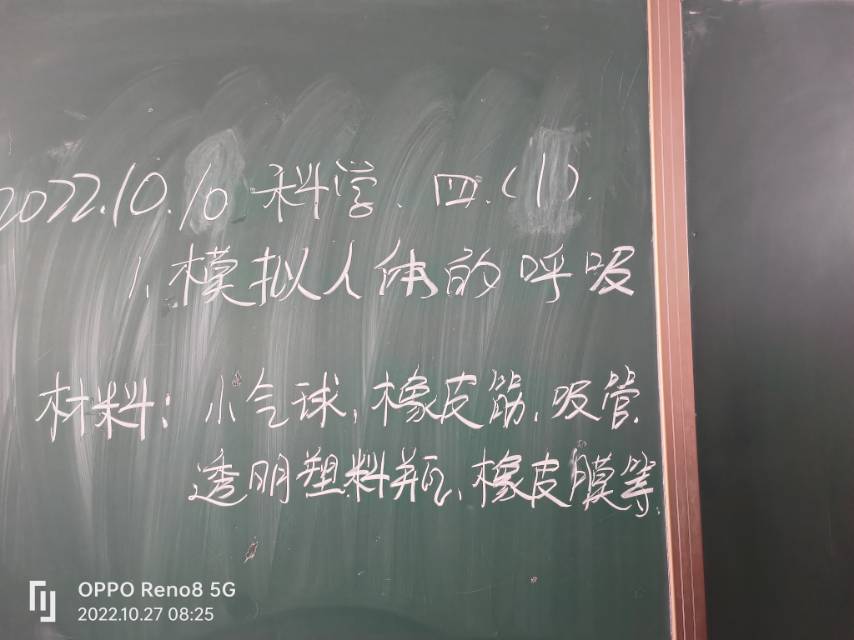 2022.10.10 科学、四.(1).
1、模拟人体的呼吸
材料：小气球，橡皮筋、吸管
透明塑料瓶、橡皮膜等.
OPPO Reno8 5G
2022.10.27 08:25